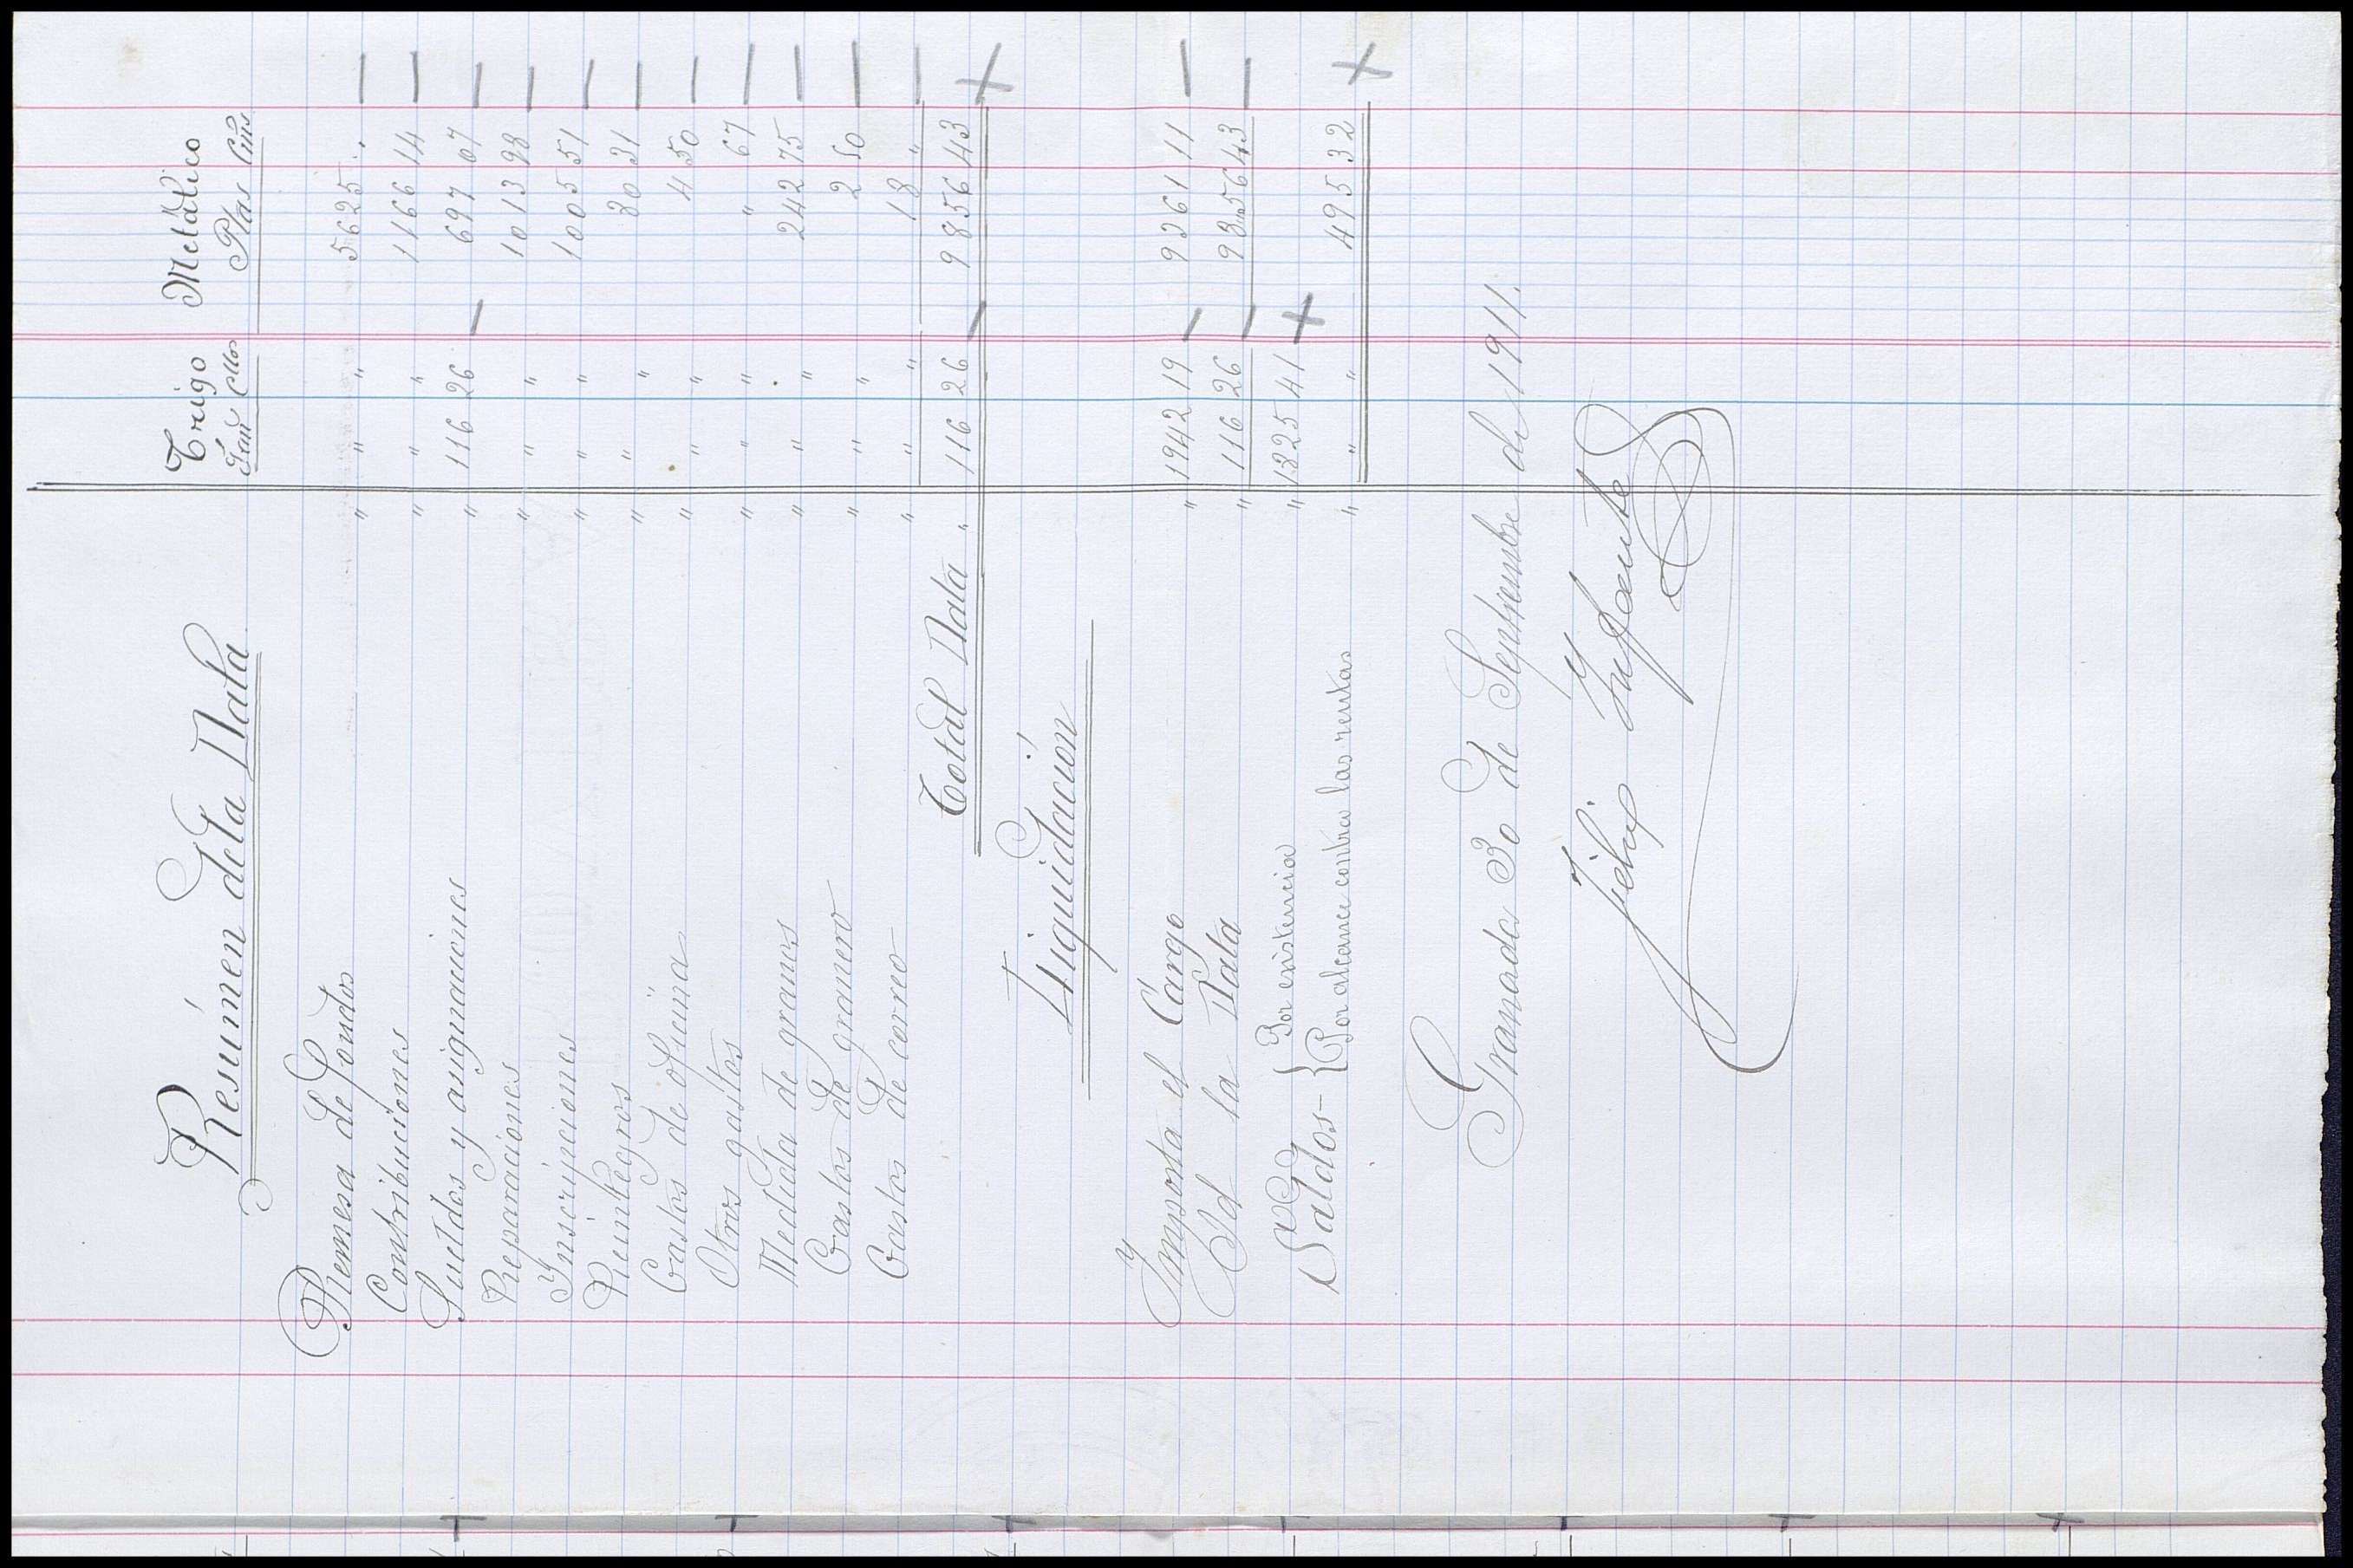 Resúmen dela Data
Trigo Metálico
Fan Cllos Ptas Cms
Remesa de fondos " " " 5625 "
Contribuciones " " " 1166 14
Sueldos y asignaciones " 116 26 697 07
Reparaciones " " " 1013 98
Ynscripciones " " " 1005 51
Reintegros " " " 80 31
Gastos de oficina " " " 4 50
Otros gastos " " " " 67
Medida de granos " " " 242 75
Gastos de granero " " " 2 50
Gastos de correo " " " 18 "
Total Data " 116 26 9856 43
Liquidación
Ymporta el Cargo " 1942 19 9361 11
Id la Data " 116 26 9856 43
Saldos- { Por existencia " 1825 41
{ Por alcance contra las rentas " " " 495 32
Granada 30 de Septiembre de 1911.
Felix Infante